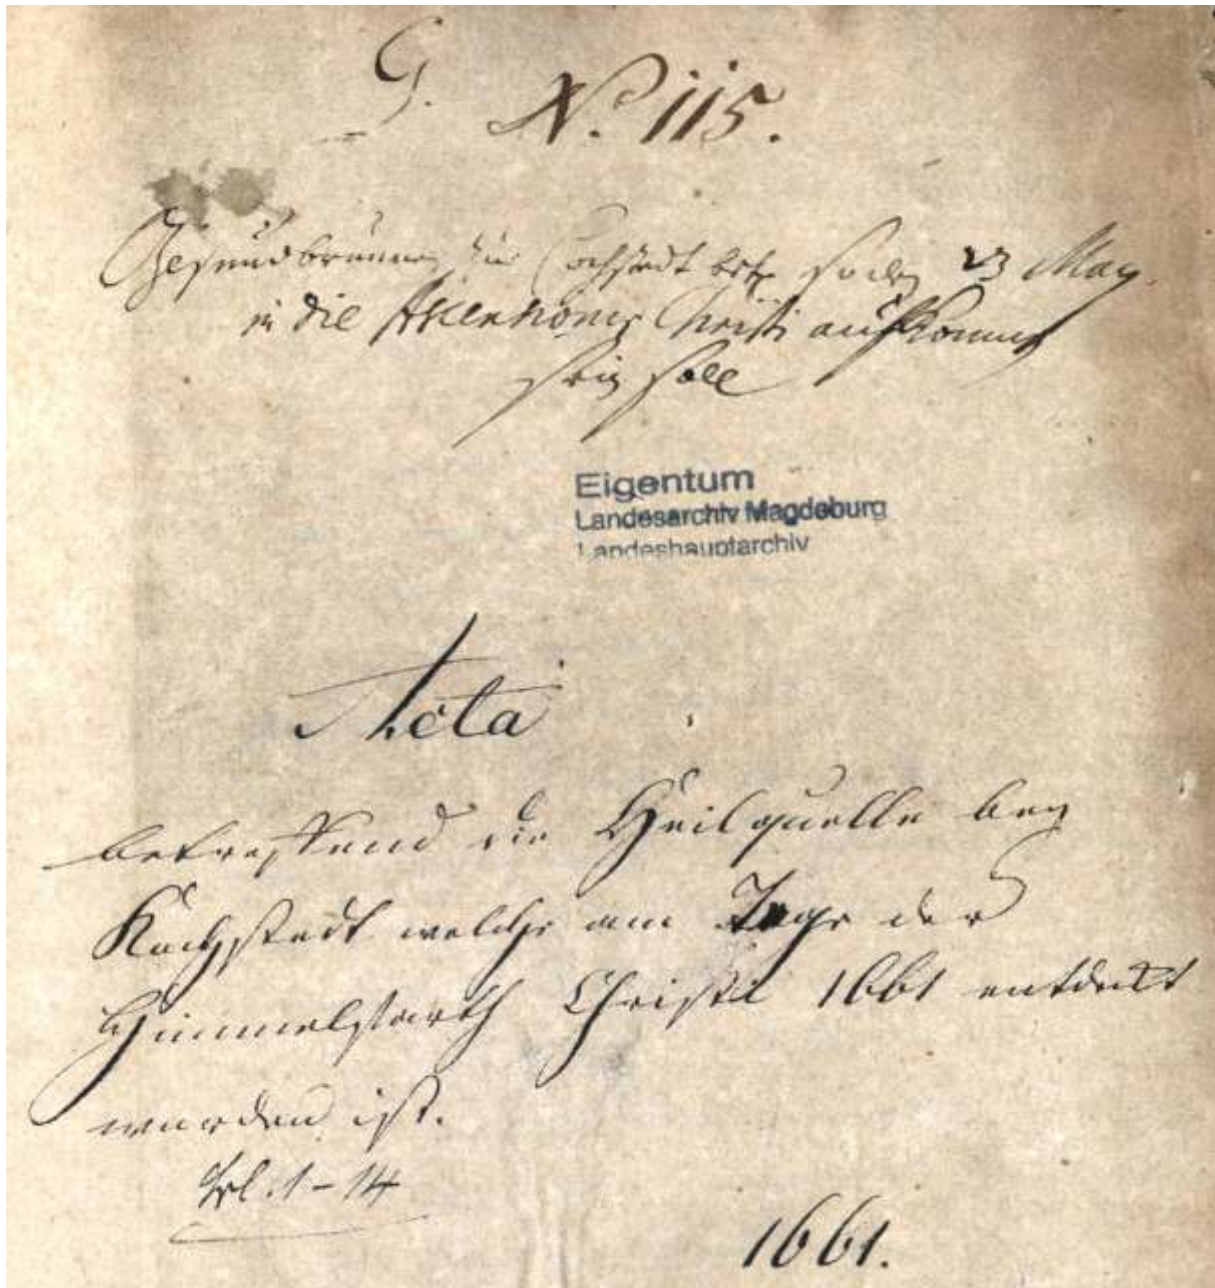 G. N. 115.
Gesundbrunnen zu Cochstedt betr. so den 23 May
in die Ascensionis Christi aufkommen
sein soll
Eigentum
Landesarchiv Magdeburg
Landeshauptarchiv
Acta
betreffend die Heilquelle bey
Kochstedt welche am Tage der
Himmelfarth Christi 1661 entdekt
worden ist.
Bl. 1-14
1661.